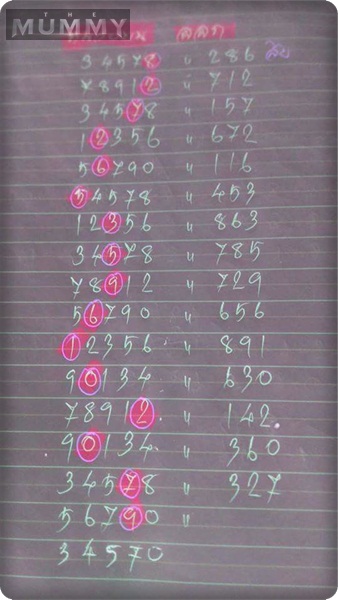 THE
MUMMY
34578 " 286
78912 " 712
34578 " 157
12356 " 672
56790 " 116
54578 " 453
12356 " 863
34578 " 785
78912 " 729
56790 " 656
12356 " 891
90134 " 630
78912 " 142
90134 " 360
34578 " 327
56790 "
34570